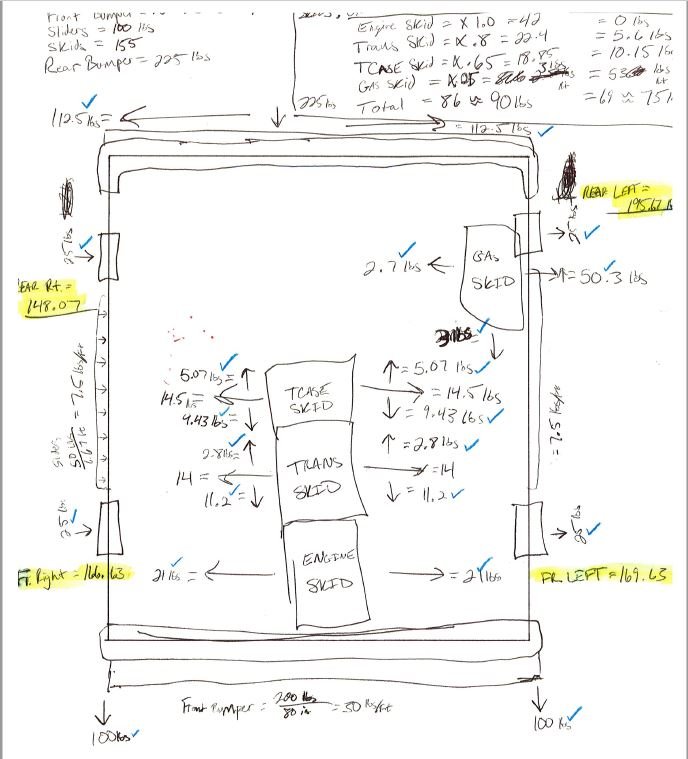 Front Bumper =
Sliders = 100 lbs
Skids = 155
Rear Bumper = 225 lbs
Engine Skid = x 1.0 = 42 = 0 lbs
Trans Skid = x .8 = 22.4 = 5.6 lbs
TCASE Skid = x .65 = 18.85 = 10.15 lbs
GAS Skid =
Total = 86 ≈ 90 lbs = 69 ≈ 75 l
225 lbs
112.5 lbs =
= 112.5 lbs
REAR LEFT =
195.67 lb
25 lbs
25 lbs
GAS
SKID
2.7 lbs
= 50.3 lbs
EAR Rt. =
148.07
3 lbs
5.07 lbs =
= 5.07 lbs
TCASE
SKID
14.5 lbs
= 14.5 lbs
9.43 lbs =
= 9.43 lbs
Sliders
50 lbs
6.67 ft
= 7.5 lbs/ft
= 7.5 lbs/ft
2.8 lbs =
= 2.8 lbs
TRANS
SKID
14 =
= 14
11.2 =
= 11.2
25 lbs
25 lbs
ENGINE
SKID
Ft. Right = 166.63
21 lbs =
= 21 lbs
FR LEFT = 169.63
Front Bumper = 200 lbs
80 in
= 30 lbs/ft
100 lbs
100 lbs